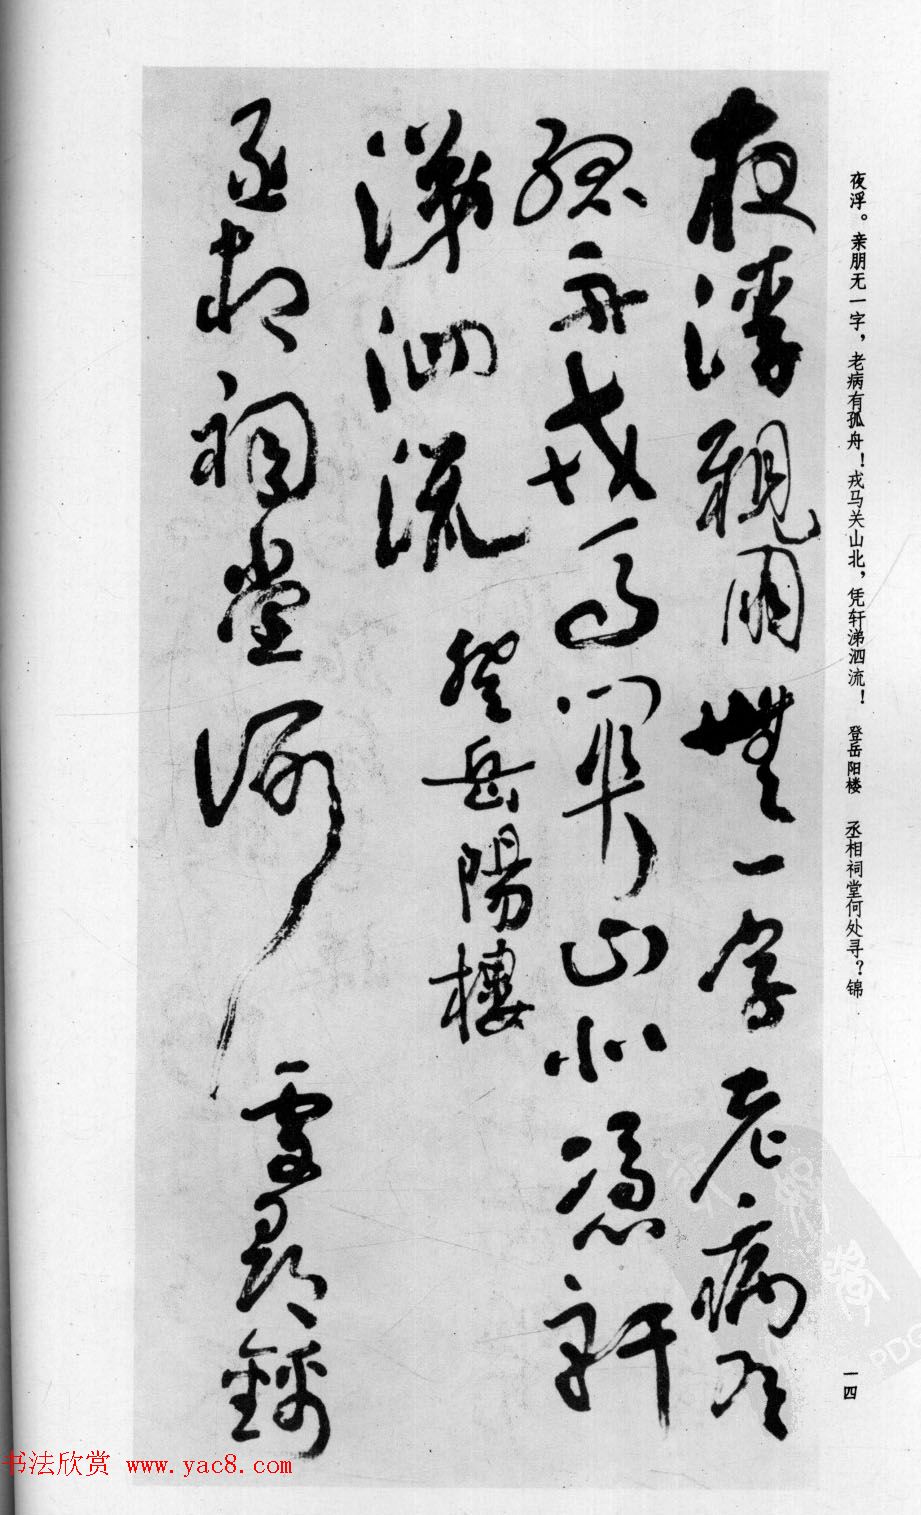 夜浮。亲朋无一字，老病有孤舟！戎马关山北，凭轩涕泗流！ 登岳阳楼 丞相祠堂何处寻？锦
一四
夜浮親朋無一字老病有
孤舟戎馬關山北憑軒
涕泗流
登岳陽樓
丞相祠堂何處尋錦
书法欣赏 www.yac8.com